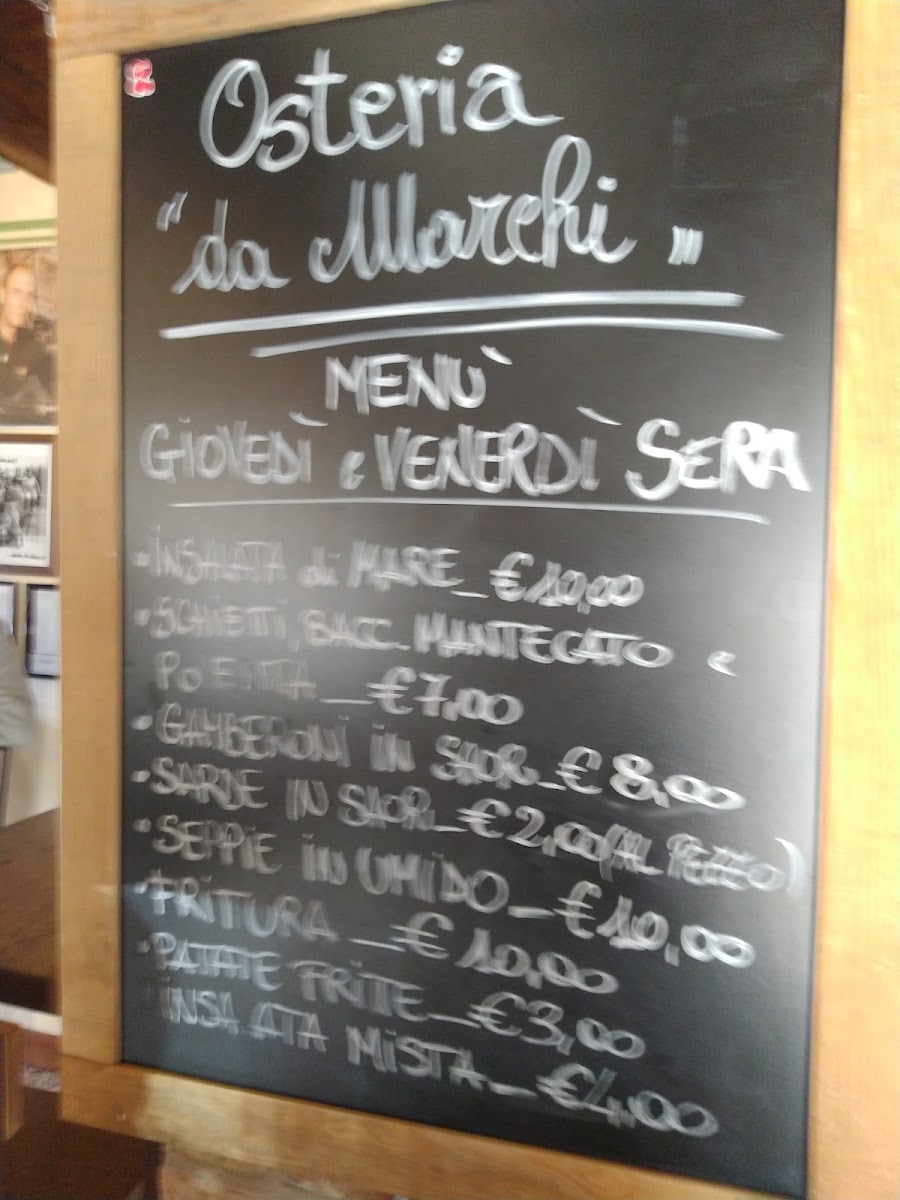 Osteria
"da Marchi"
MENÙ
GIOVEDÌ e VENERDÌ SERA
• INSALATA di MARE _ €10,00
• SCHIETTI, BACC. MANTECATO e
POLENTA _ €7,00
• GAMBERONI IN SAOR _ € 8,00
• SARDE IN SAOR _ € 2,00 (AL PEZZO)
• SEPPIE IN UMIDO _ €10,00
• FRITURA _ € 10,00
• PATATE FRITTE _ €3,00
INSALATA MISTA _ €4,00